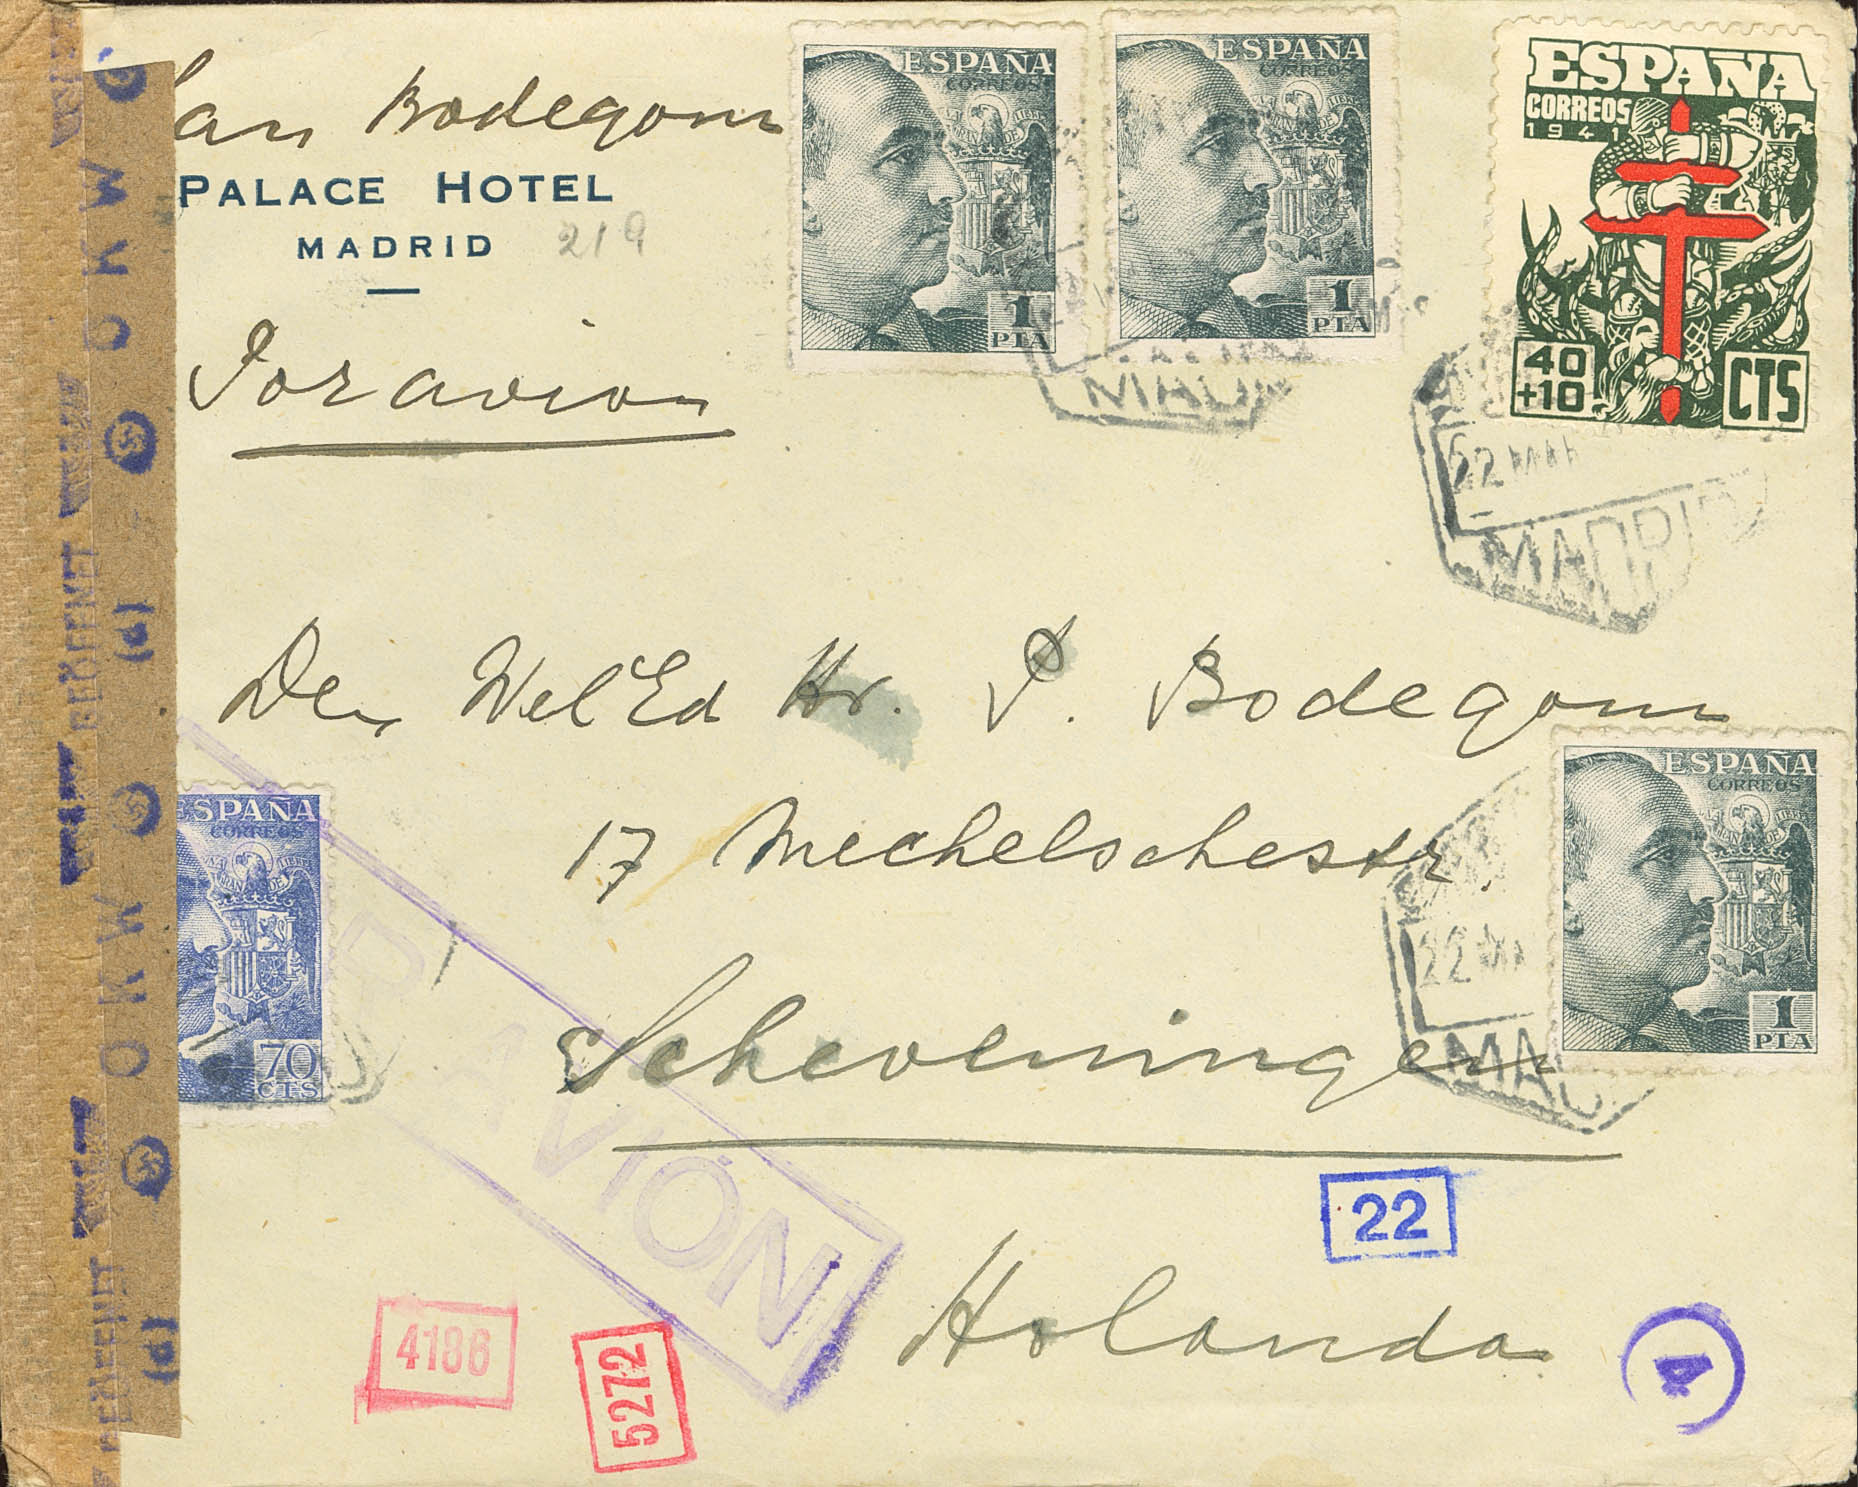 Van Bodegom
PALACE HOTEL
MADRID
219
Por avion
ESPAÑA
CORREOS
1
PTA
ESPAÑA
CORREOS
1
PTA
ESPAÑA
CORREOS
1941
40
+10
CTS
22 MAR
MADRID
Den WelEd Hr. P. Bodegom
17 Mechelschestr.
Scheveningen
Holanda
ESPAÑA
CORREOS
1
PTA
22
ESPAÑA
CORREOS
70
CTS
AVIÓN
22
4186
5272
A
OKW
(d)
OKW
(d)